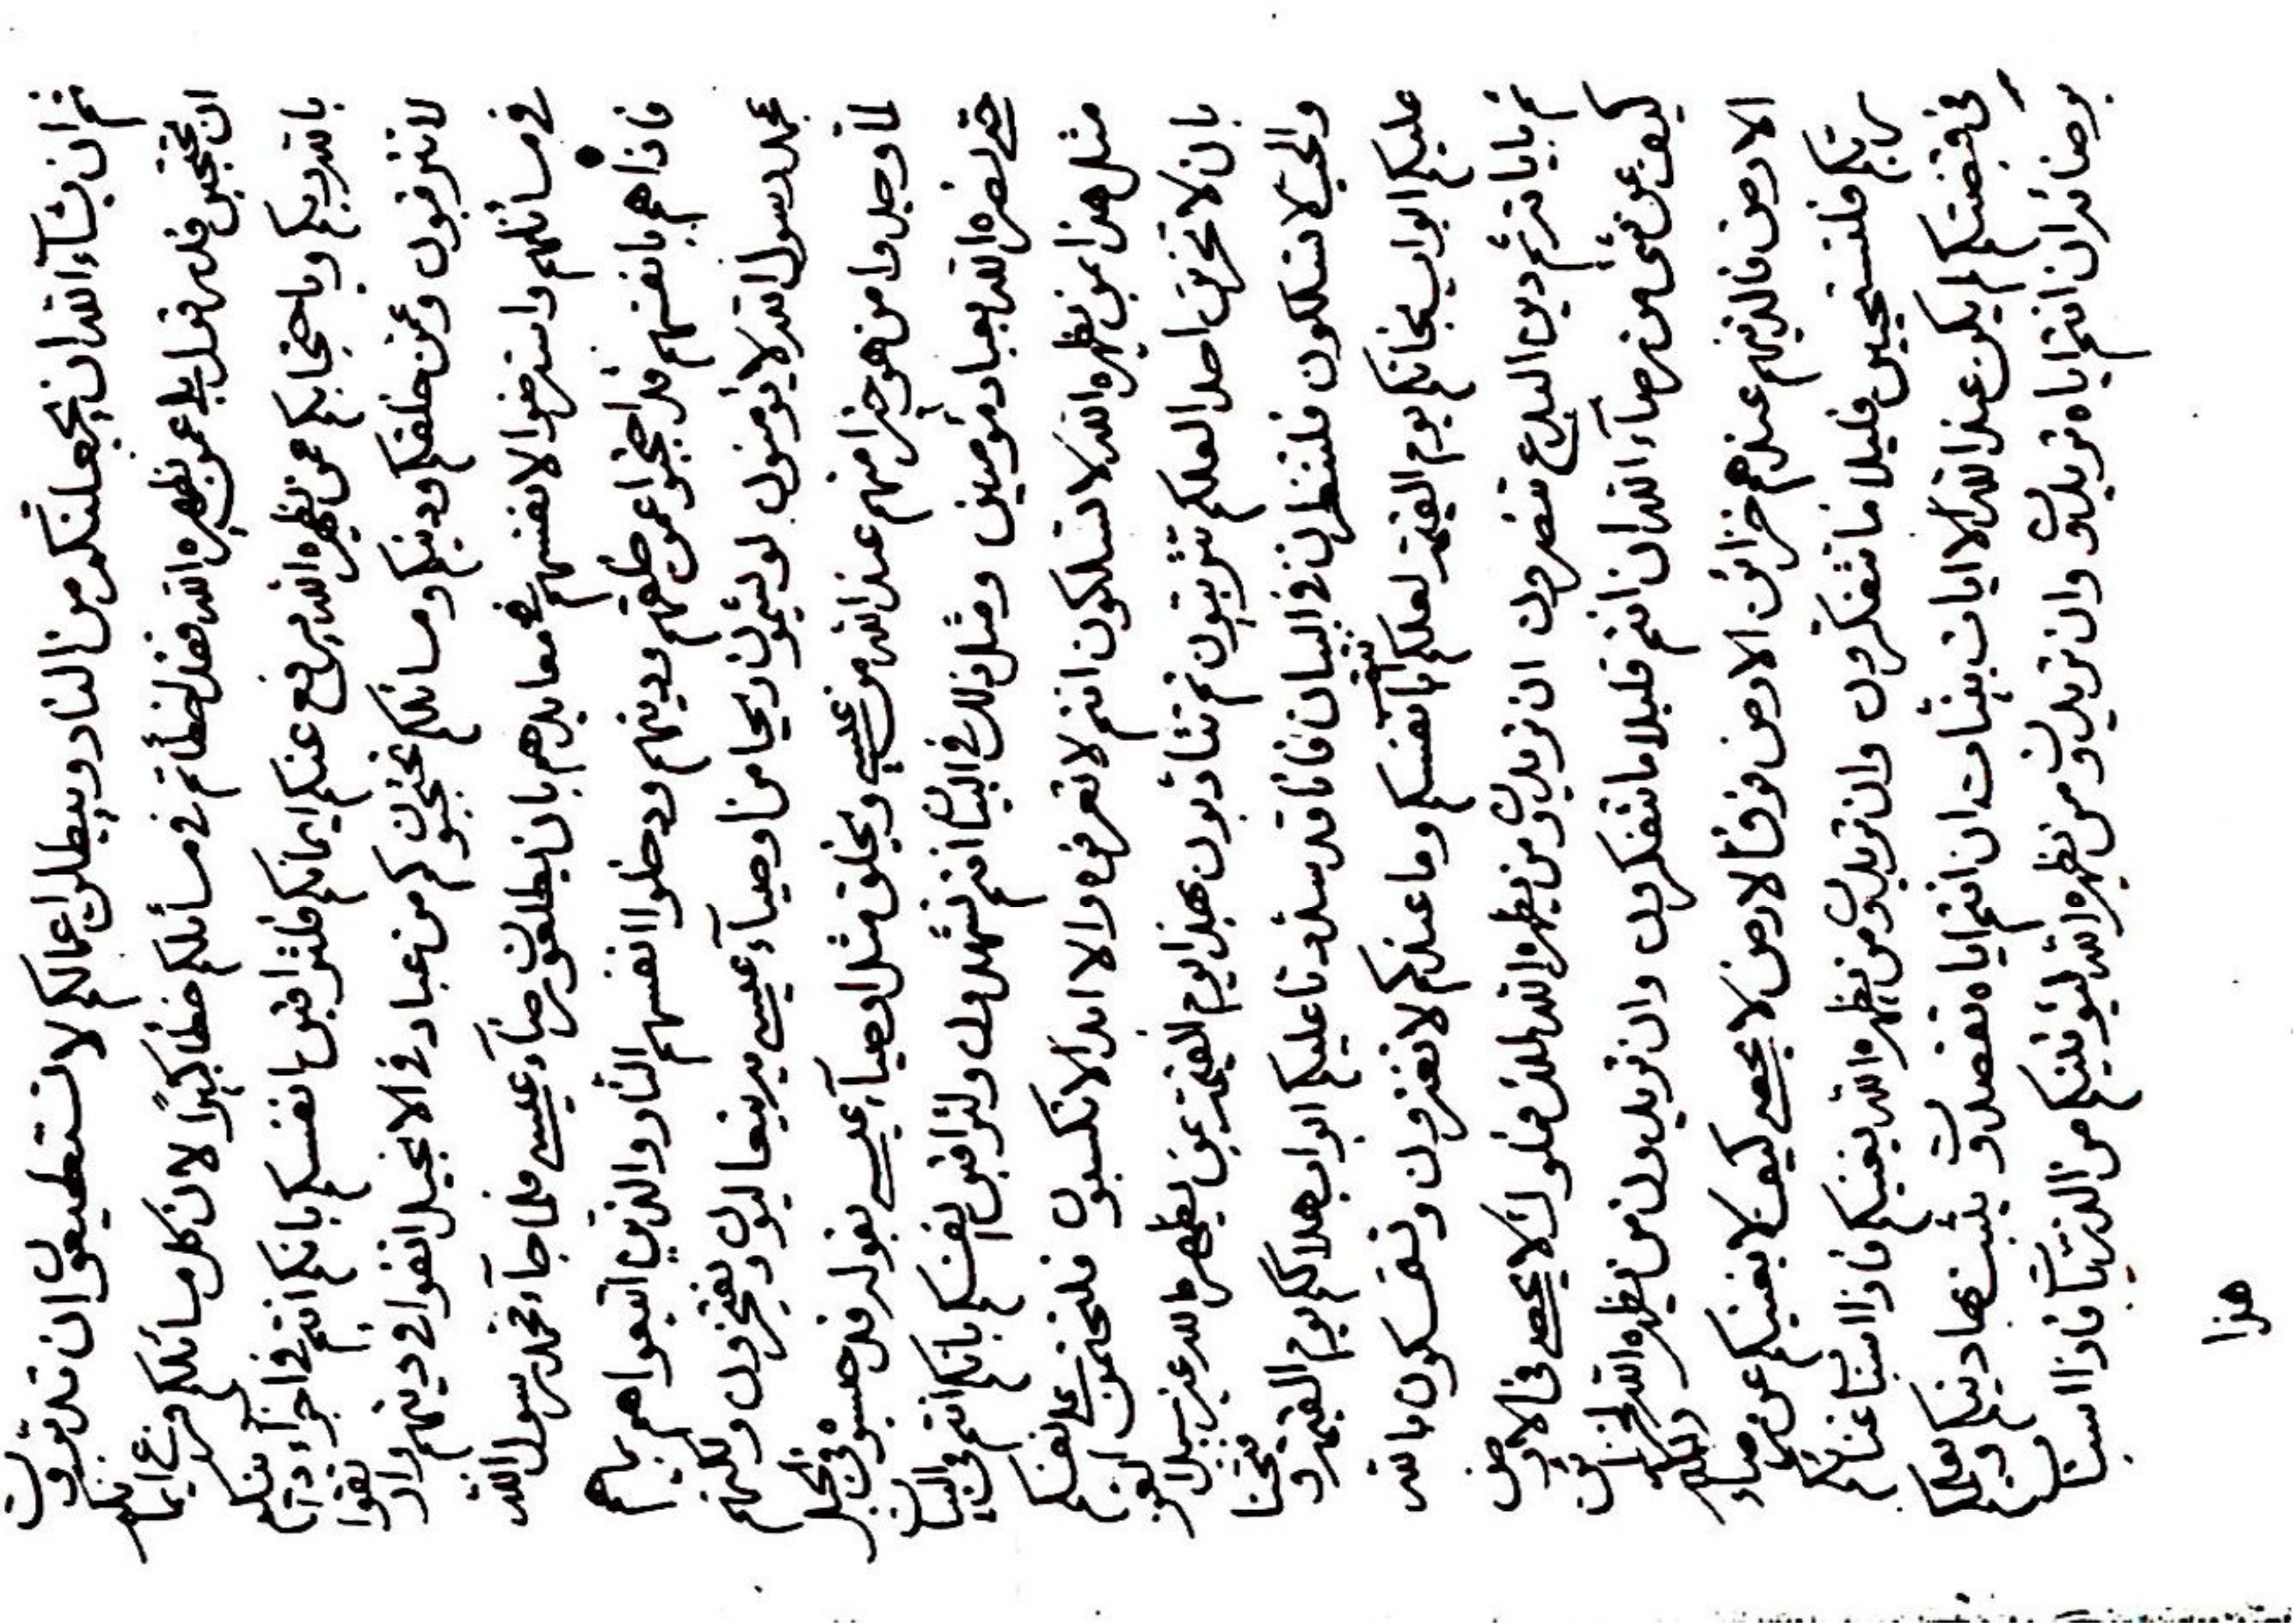 ثم ان يشآء الله ان يجعلنكم من النار ويبطل اعمالكم لا تستطيعون ان تدركون
ان تحتجبن قدر قول بلى عمن يظهره الله فقد اخطأتم في مسائلكم خطأ كبيرا لان كل مسائلكم فرع ايمانكم
بالله ربكم وباحتجابكم عمن يظهره الله يرفع عنكم ايمانكم فلتراقبن انفسكم بانكم انتم في اجزآء دينكم
لا تترقبون وعمن خلقكم ودينكم ومسائلكم تحتجبون كم من عباد في الانجيل اتقوا في دينهم
في مسائلهم واسترضوا لانفسهم في معابدهم بان يطلعن برضآء عيسى فلما جآء محمد رسول الله
فاذا هم بانفسهم قد احتجبوا عمن خلقهم ودينهم ودخلوا انفسهم النار والذين اتبعواهم
محمد رسول الله لا يؤمنون لو يشمون ريحا من اوصيآء عيسى ويفتخرون ولكنهم
لما وجدوا من هو خير منهم عند الله من عيسى ويخلق مثل اوصيآء عيسى بقوله قد حبسوه في الجبل
حتى نصره الله بعباد مؤمنين ومثل ذلك في البيان انتم تشهدون ولتراقبن انفسكم بانكم انتم في البيان
مثل هذا بمن يظهره الله لا تسلكون انتم لا تعرفوه والا ابدا لا تكسبون على انفسكم
بان لا تحزنن احدا لعلكم تتربيون ثم تتأدبون بهذا يوم القيمة عمن يظهره الله سبيل العز
والحب لا تسلكون فلتنظرن في البيان فانا قد سددنا عليكم ابواب هلاككم يوم القيمة وفتحنا
عليكم ابواب نجاتكم يوم القيمة لعلكم بانفسكم وما عندكم لا تغترون بالله
ثم باياته ثم دين البدع تنصرون ان تريدون من يظهره الله لملك لا يحصى في الارض
كيف عن شئ من رضآء الله ان انتم قليلا ما تتفكرون وان تريدون من يظهره الله لخزائن
الارض فالذينهم عندهم خزائن الارض فوق الارض لا يحصى كيف لا يغنيكم عن رضآء
ربكم فلتستحيين قليلا ما تتفكرون وان تريدون من يظهره الله يغنيكم فاذا اسباب غنائكم
في قبضتكم لم يكن عند الله الا ايات بينات ان انتم اياه تقصدون يثبت بها دينكم
برضائه ان انتم اياه تريدون وان تريدون من يظهره الله ليؤتينكم من الدنيا فاذا اسباب
هذا